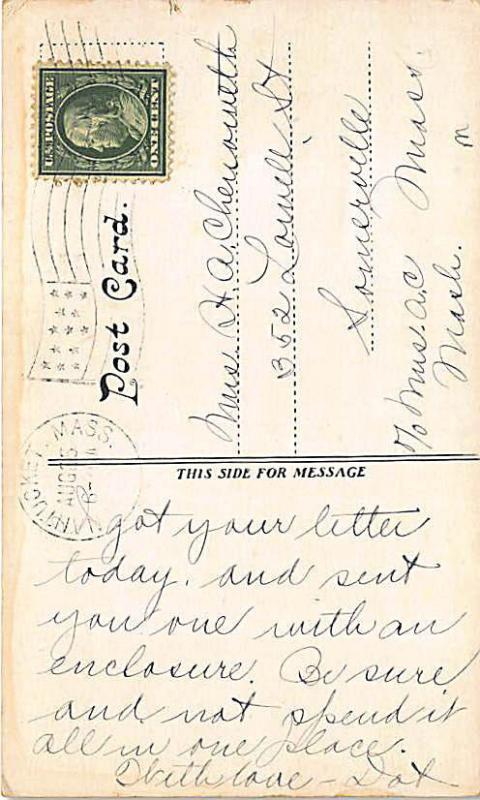 U.S. POSTAGE
1 CENT 1
NANTUCKET, MASS.
AUG
Post Card.
Mrs. H. A. Chenoweth
352 Lowell St
Somerville
Mass.
c/o Mrs. A.C
Nash.
THIS SIDE FOR MESSAGE
I got your letter
today. and sent
you one with an
enclosure. Be sure
and not spend it
all in one place.
With love - Dot